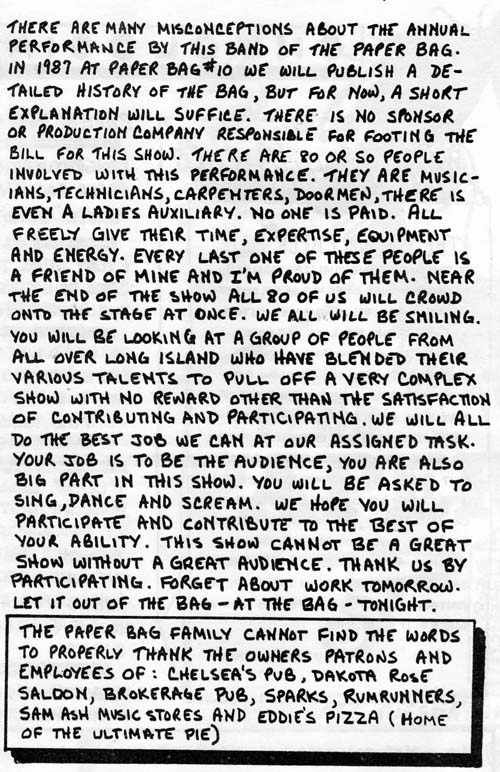 THERE ARE MANY MISCONCEPTIONS ABOUT THE ANNUAL
PERFORMANCE BY THIS BAND OF THE PAPER BAG.
IN 1987 AT PAPER BAG #10 WE WILL PUBLISH A DE-
TAILED HISTORY OF THE BAG, BUT FOR NOW, A SHORT
EXPLANATION WILL SUFFICE. THERE IS NO SPONSOR
OR PRODUCTION COMPANY RESPONSIBLE FOR FOOTING THE
BILL FOR THIS SHOW. THERE ARE 80 OR SO PEOPLE
INVOLVED WITH THIS PERFORMANCE. THEY ARE MUSIC-
IANS, TECHNICIANS, CARPENTERS, DOORMEN, THERE IS
EVEN A LADIES AUXILIARY. NO ONE IS PAID. ALL
FREELY GIVE THEIR TIME, EXPERTISE, EQUIPMENT
AND ENERGY. EVERY LAST ONE OF THESE PEOPLE IS
A FRIEND OF MINE AND I'M PROUD OF THEM. NEAR
THE END OF THE SHOW ALL 80 OF US WILL CROWD
ONTO THE STAGE AT ONCE. WE ALL WILL BE SMILING.
YOU WILL BE LOOKING AT A GROUP OF PEOPLE FROM
ALL OVER LONG ISLAND WHO HAVE BLENDED THEIR
VARIOUS TALENTS TO PULL OFF A VERY COMPLEX
SHOW WITH NO REWARD OTHER THAN THE SATISFACTION
OF CONTRIBUTING AND PARTICIPATING. WE WILL ALL
DO THE BEST JOB WE CAN AT OUR ASSIGNED TASK.
YOUR JOB IS TO BE THE AUDIENCE, YOU ARE ALSO
BIG PART IN THIS SHOW. YOU WILL BE ASKED TO
SING, DANCE AND SCREAM. WE HOPE YOU WILL
PARTICIPATE AND CONTRIBUTE TO THE BEST OF
YOUR ABILITY. THIS SHOW CANNOT BE A GREAT
SHOW WITHOUT A GREAT AUDIENCE. THANK US BY
PARTICIPATING. FORGET ABOUT WORK TOMORROW.
LET IT OUT OF THE BAG - AT THE BAG - TONIGHT.
THE PAPER BAG FAMILY CANNOT FIND THE WORDS
TO PROPERLY THANK THE OWNERS PATRONS AND
EMPLOYEES OF: CHELSEA'S PUB, DAKOTA ROSE
SALOON, BROKERAGE PUB, SPARKS, RUMRUNNERS,
SAM ASH MUSIC STORES AND EDDIE'S PIZZA (HOME
OF THE ULTIMATE PIE)